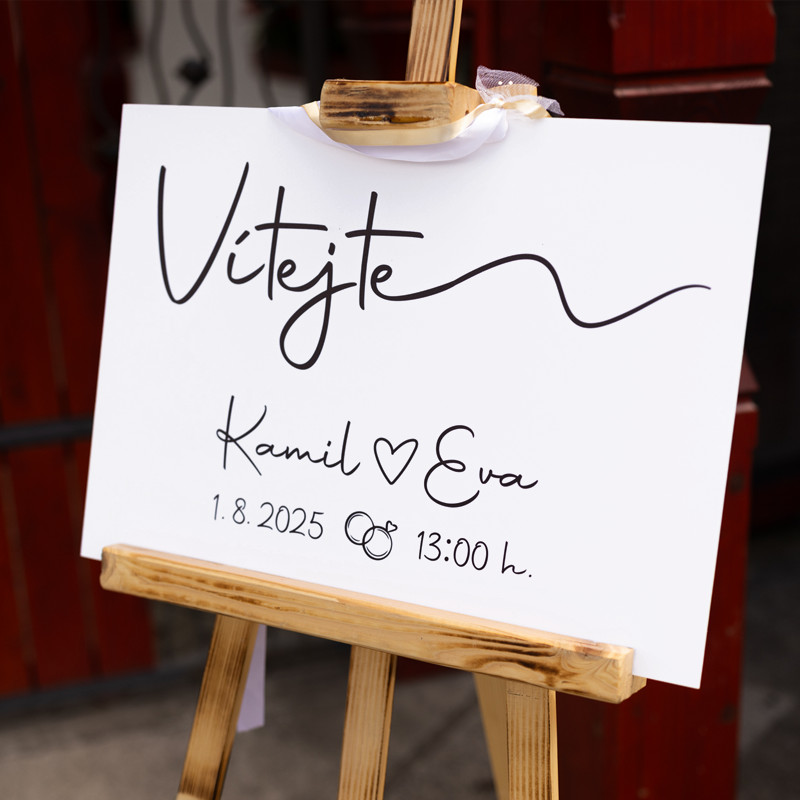 Vítejte
Kamil ♡ Eva
1. 8. 2025 13:00 h.